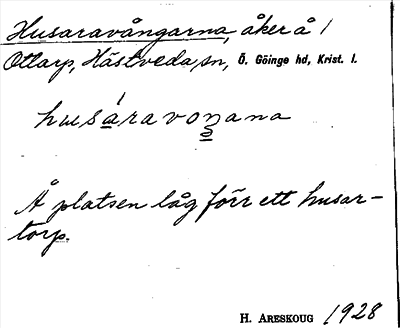 Husaravångarna, åker å 1
Ottarp, Hästveda sn, Ö. Göinge hd, Krist. l.
husáravoŋana
Å platsen låg förr ett husar-
torp.
H. ARESKOUG 1928